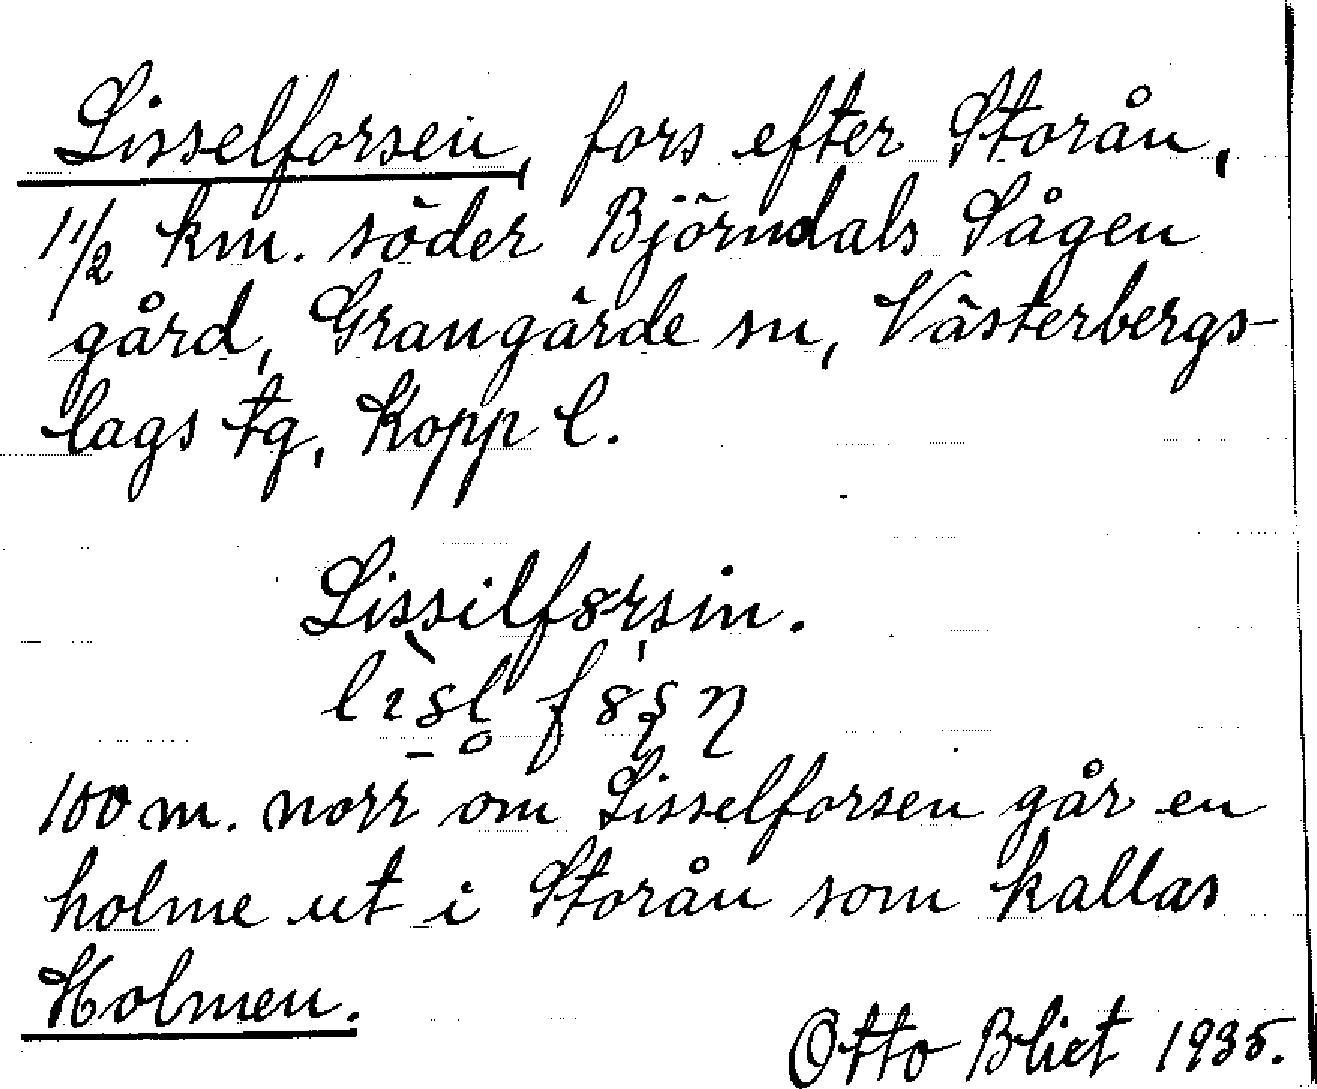 Lisselforsen, fors efter Storån,
1 1/2 km. söder Björndals Sågen
gård, Grangärde sn, Västerbergs-
lags tg, Kopp l.
Lissilfȣrsin.
100 m. norr om Lisselforsen går en
holme ut i Storån som kallas
Holmen.
Otto Blixt 1935.